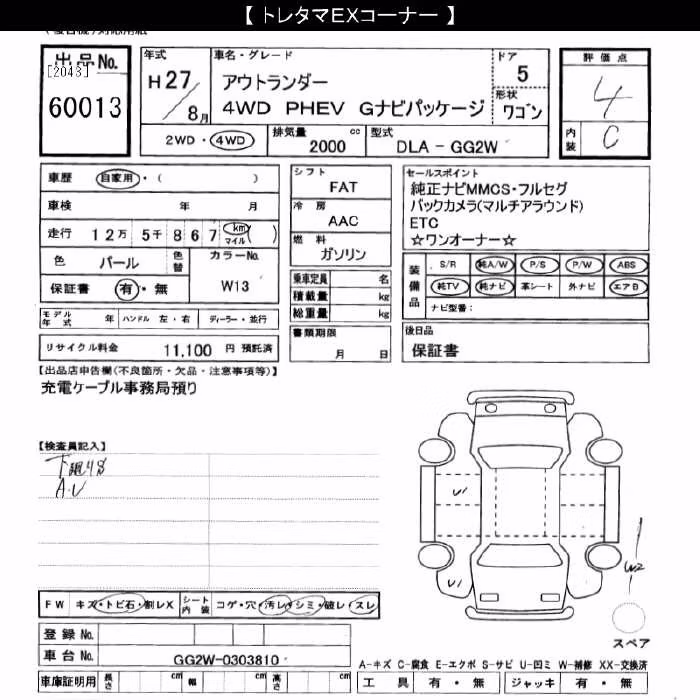 【 トレタマEXコーナー 】
出品No.
[2043]
60013
年式
H27/8月
車名・グレード
アウトランダー
4WD PHEV Gナビパッケージ
ドア
5
形状
ワゴン
評価点
4
内装
C
2WD・4WD
排気量
2000 cc
型式
DLA - GG2W
車歴 自家用・( )
車検 年 月
走行 12万 5千 8 6 7 km マイル ( )
色 パール
色替
カラーNo.
W13
保証書 有・無
シフト
FAT
冷房
AAC
燃料
ガソリン
乗車定員 名
積載量 kg
総重量 kg
書類期限
月 日
セールスポイント
純正ナビMMCS・フルセグ
バックカメラ(マルチアラウンド)
ETC
☆ワンオーナー☆
装備品
S/R 純A/W P/S P/W ABS
純TV 純ナビ 革シート 外ナビ エアB
ナビ型番：
後日品
保証書
モデル年式 年 ハンドル 左・右 ディーラー・並行
リサイクル料金 11,100 円 預託済
【出品店申告欄(不良箇所・欠品・注意事項等)】
充電ケーブル事務局預り
【検査員記入】
A.U
U1
U1
W2
FW キズ・トビ石・割レX
シート内装 コゲ・穴・汚レ・シミ・破レ・スレ
スペア
登録 No.
車台 No. GG2W-0303810
A-キズ C-腐食 E-エクボ S-サビ U-凹ミ W-補修 XX-交換済
車庫証明用 長さ cm 幅 cm 高さ cm
工具 有・無 ジャッキ 有・無